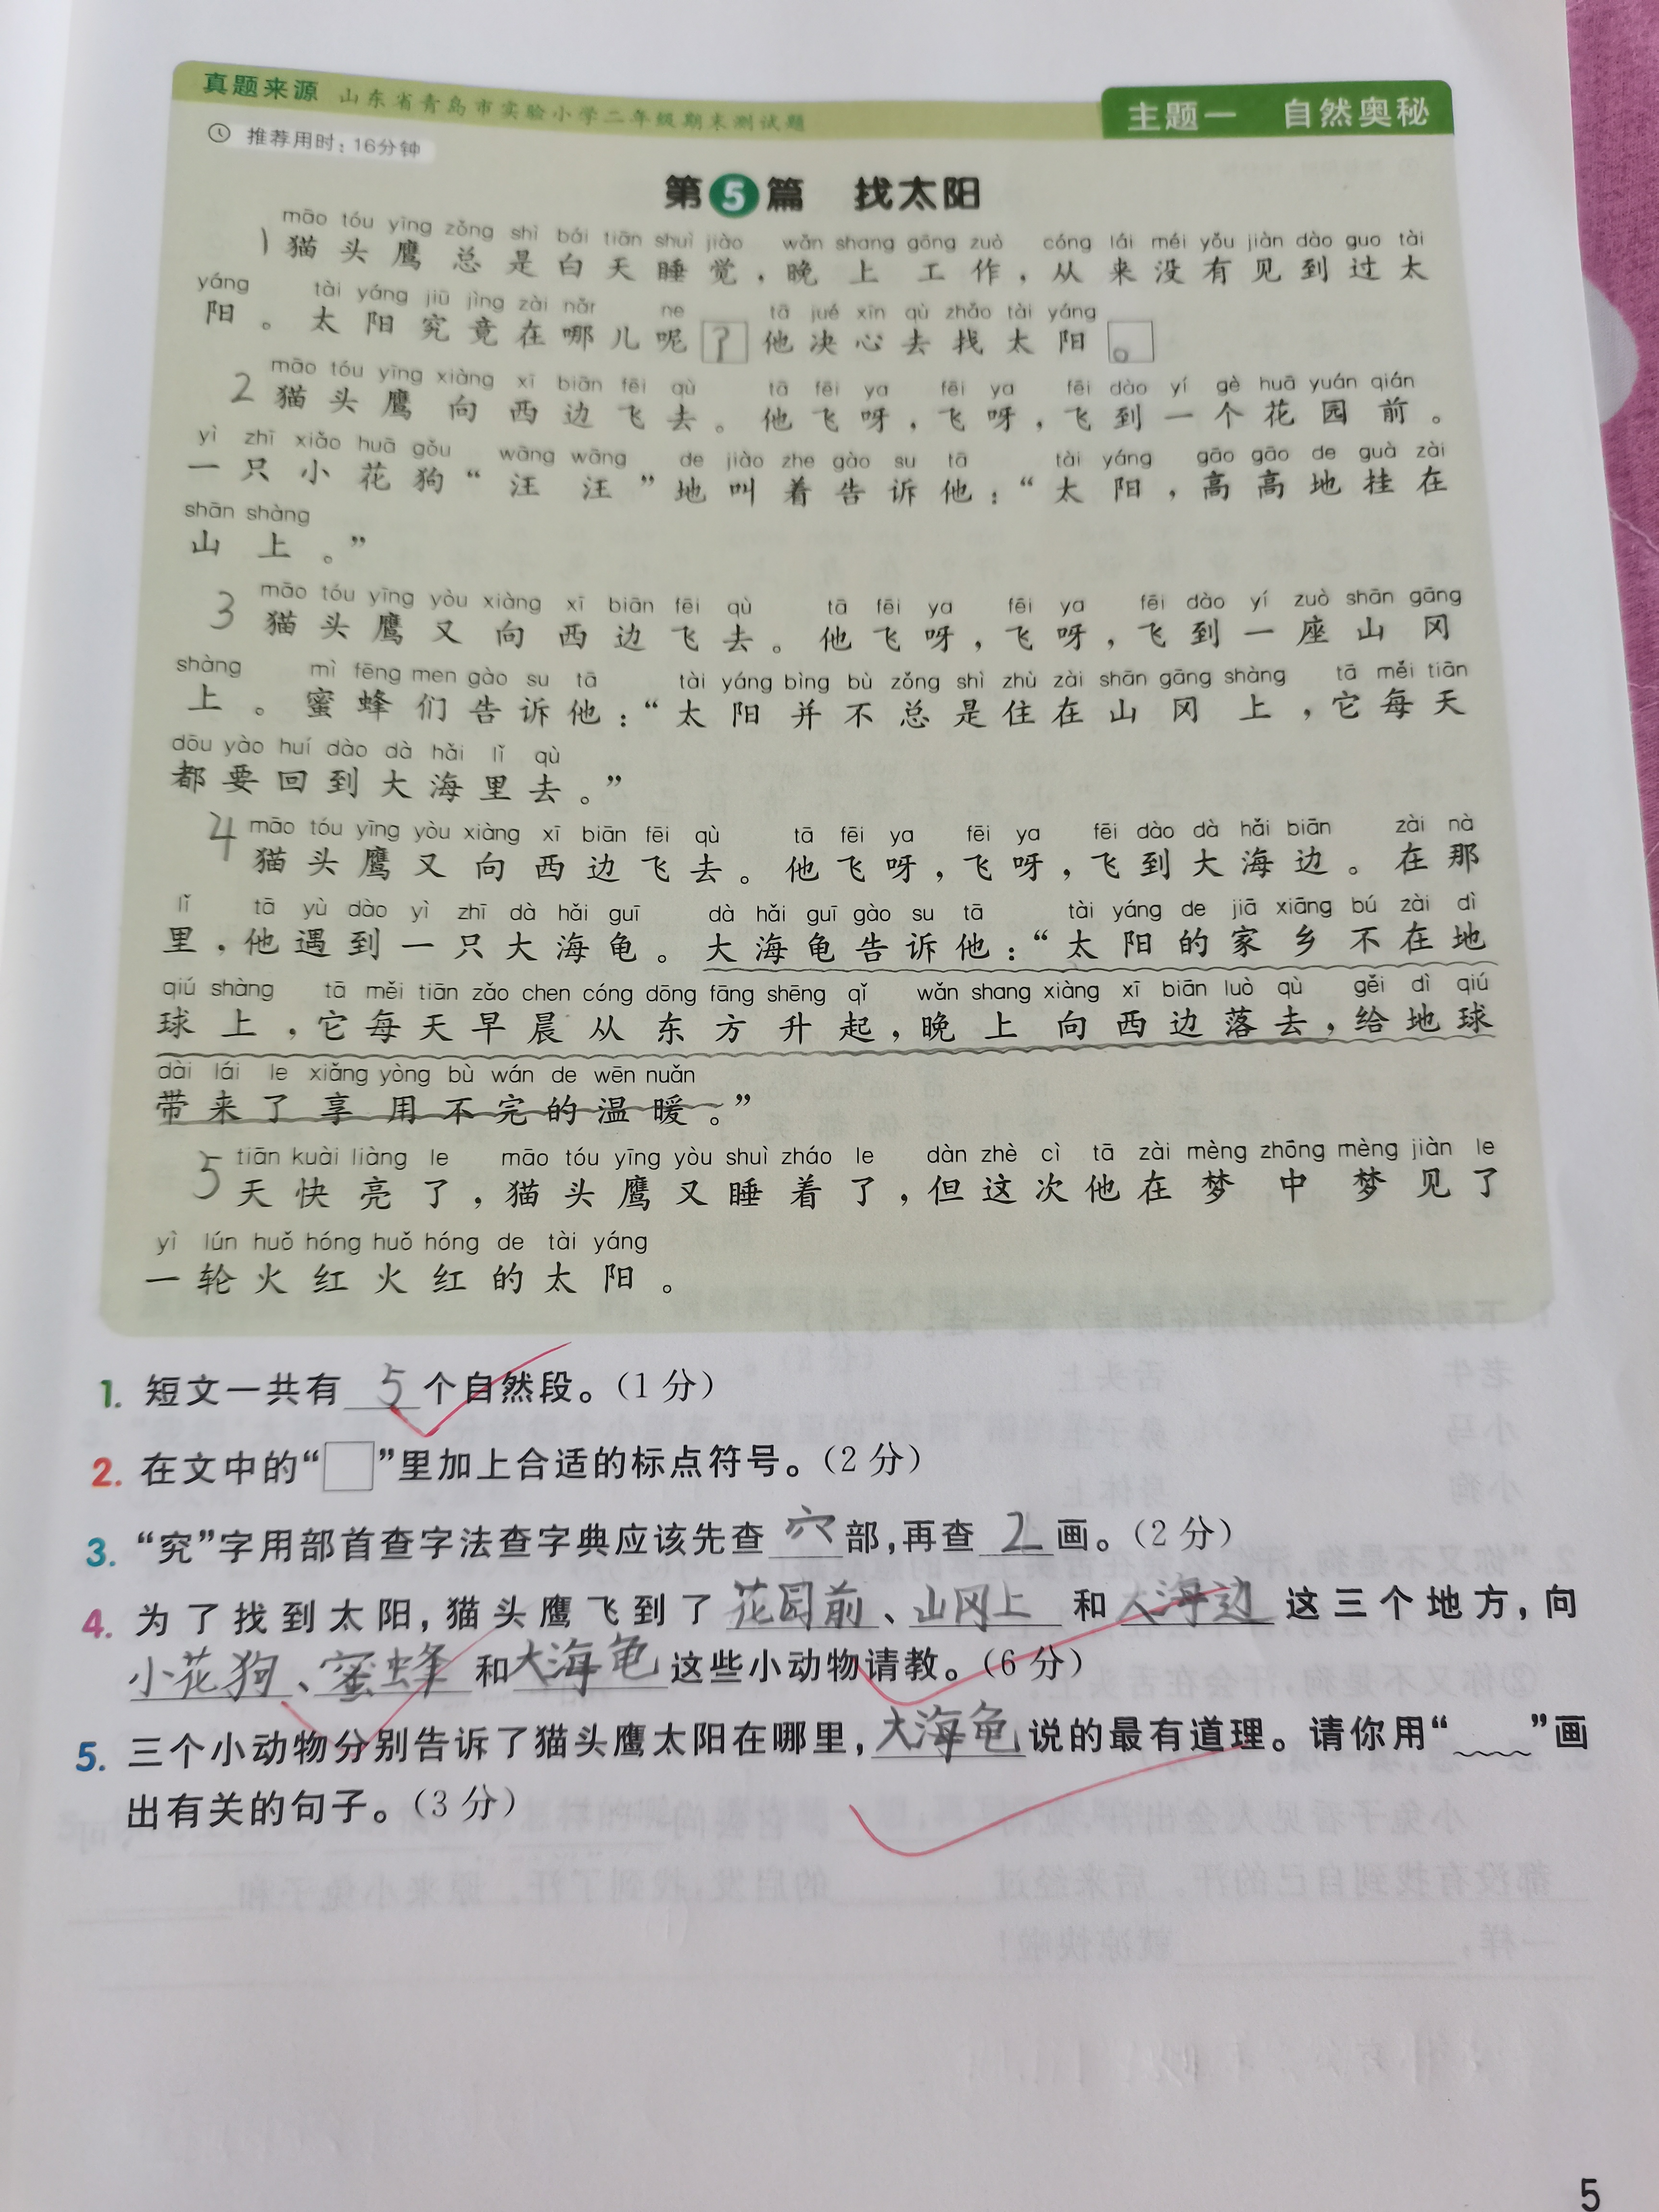 真题来源 山东省青岛市实验小学二年级期末测试题
主题一 自然奥秘
推荐用时：16分钟
第5篇 找太阳
māo tóu yīng zǒng shì bái tiān shuì jiào wǎn shang gōng zuò cóng lái méi yǒu jiàn dào guo tài
1 猫头鹰总是白天睡觉，晚上工作，从来没有见到过太
yáng tài yáng jiū jìng zài nǎr ne tā jué xīn qù zhǎo tài yáng
阳。太阳究竟在哪儿呢？他决心去找太阳。
māo tóu yīng xiàng xī biān fēi qù tā fēi ya fēi ya fēi dào yí gè huā yuán qián
2 猫头鹰向西边飞去。他飞呀，飞呀，飞到一个花园前。
yì zhī xiǎo huā gǒu wāng wāng de jiào zhe gào su tā tài yáng gāo gāo de guà zài
一只小花狗“汪汪”地叫着告诉他：“太阳，高高地挂在
shān shàng
山上。”
māo tóu yīng yòu xiàng xī biān fēi qù tā fēi ya fēi ya fēi dào yí zuò shān gāng
3 猫头鹰又向西边飞去。他飞呀，飞呀，飞到一座山冈
shàng mì fēng men gào su tā tài yáng bìng bù zǒng shì zhù zài shān gāng shàng tā měi tiān
上。蜜蜂们告诉他：“太阳并不总是住在山冈上，它每天
dōu yào huí dào dà hǎi lǐ qù
都要回到大海里去。”
māo tóu yīng yòu xiàng xī biān fēi qù tā fēi ya fēi ya fēi dào dà hǎi biān zài nà
4 猫头鹰又向西边飞去。他飞呀，飞呀，飞到大海边。在那
lǐ tā yù dào yì zhī dà hǎi guī dà hǎi guī gào su tā tài yáng de jiā xiāng bú zài dì
里，他遇到一只大海龟。大海龟告诉他：“太阳的家乡不在地
qiú shàng tā měi tiān zǎo chen cóng dōng fāng shēng qǐ wǎn shang xiàng xī biān luò qù gěi dì qiú
球上，它每天早晨从东方升起，晚上向西边落去，给地球
dài lái le xiǎng yòng bù wán de wēn nuǎn
带来了享用不完的温暖。”
tiān kuài liàng le māo tóu yīng yòu shuì zháo le dàn zhè cì tā zài mèng zhōng mèng jiàn le
5 天快亮了，猫头鹰又睡着了，但这次他在梦中梦见了
yì lún huǒ hóng huǒ hóng de tài yáng
一轮火红火红的太阳。
1. 短文一共有 5 个自然段。（1分）
2. 在文中的“□”里加上合适的标点符号。（2分）
3. “究”字用部首查字法查字典应该先查 穴 部，再查 2 画。（2分）
4. 为了找到太阳，猫头鹰飞到了 花园前、山冈上 和 大海边 这三个地方，向
小花狗、蜜蜂 和 大海龟 这些小动物请教。（6分）
5. 三个小动物分别告诉了猫头鹰太阳在哪里，大海龟 说的最有道理。请你用“﹏﹏”画
出有关的句子。（3分）
5